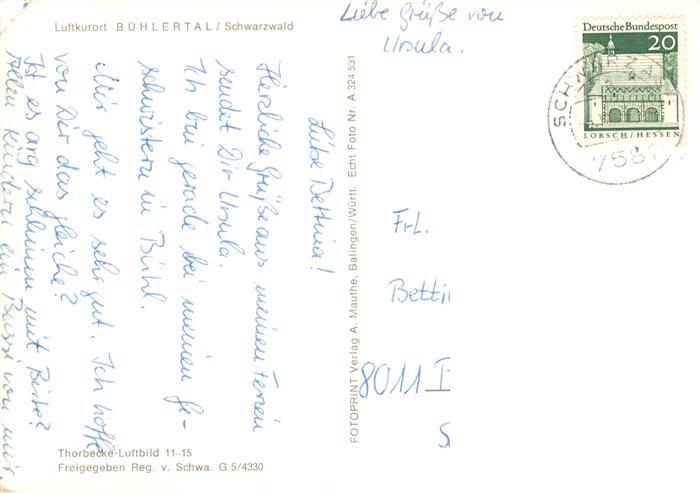 Luftkurort BÜHLERTAL / Schwarzwald
Liebe Bettina!
Herzliche Grüße aus meinen Ferien
sendet Dir Ursula.
Ich bin gerade bei meinen Ge-
schwistern in Bühl.
Mir geht es sehr gut. Ich hoffe
von Dir das gleiche?
Ist es arg schlimm mit Birte?
Allen Kindern ein Bussi von mir
Liebe Grüße von
Ursula.
Thorbecke-Luftbild 11–15
Freigegeben Reg. v. Schwa. G 5/4330
FOTOPRINT Verlag A. Mauthe, Balingen/Württ. Echt Foto Nr. A 324 531
Deutsche Bundespost
20
LORSCH/HESSEN
SCHWARZA
758
Frl.
Betti
8011
S